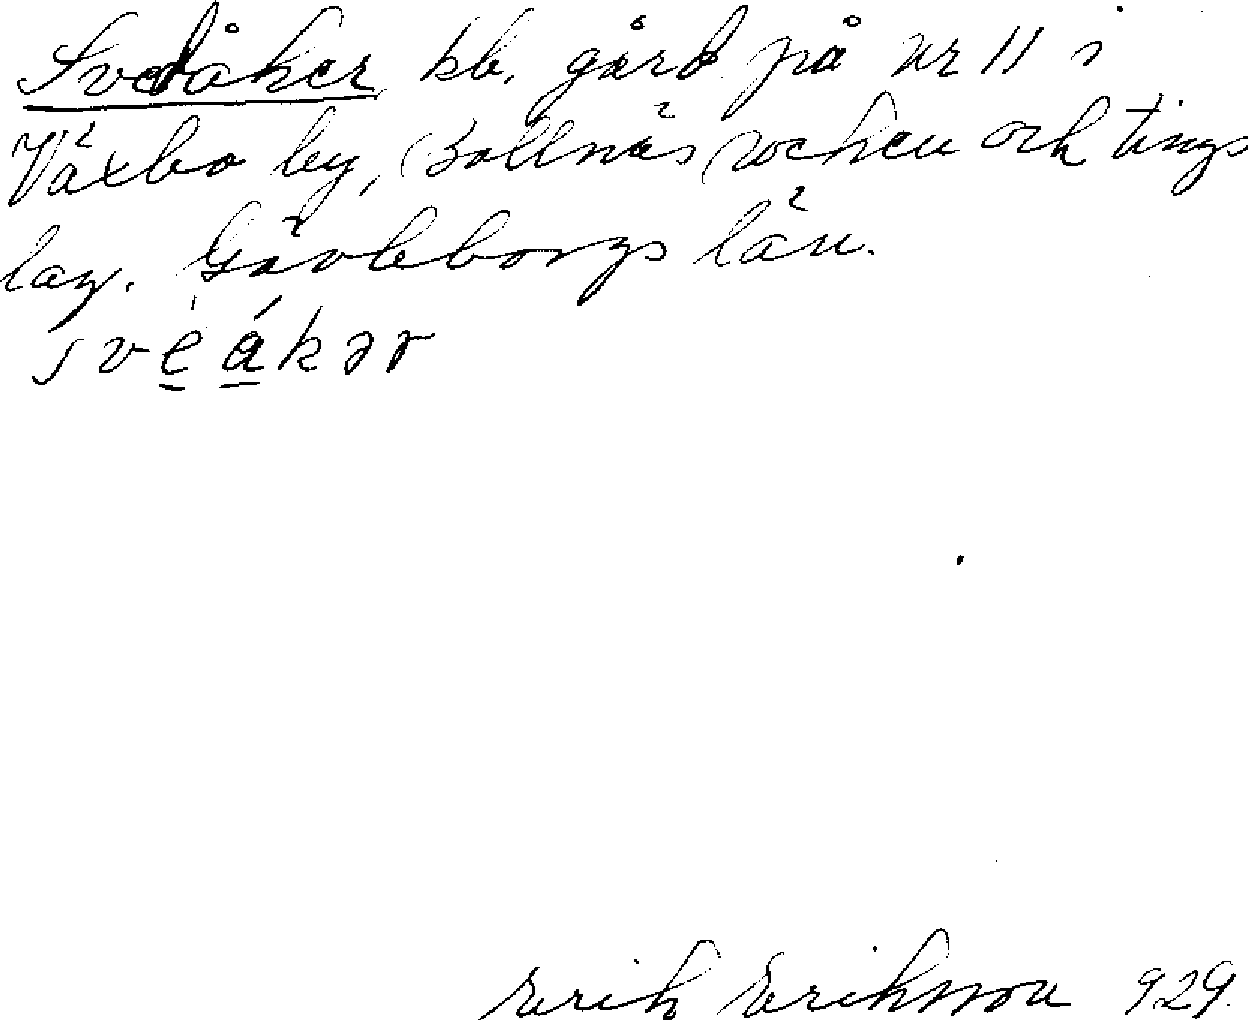 Svedåker, kb. gård på nr 11 i
Växbo by, Bollnäs socken och tings
lag. Gävleborgs län.
svèákər
Erik Eriksson 929.